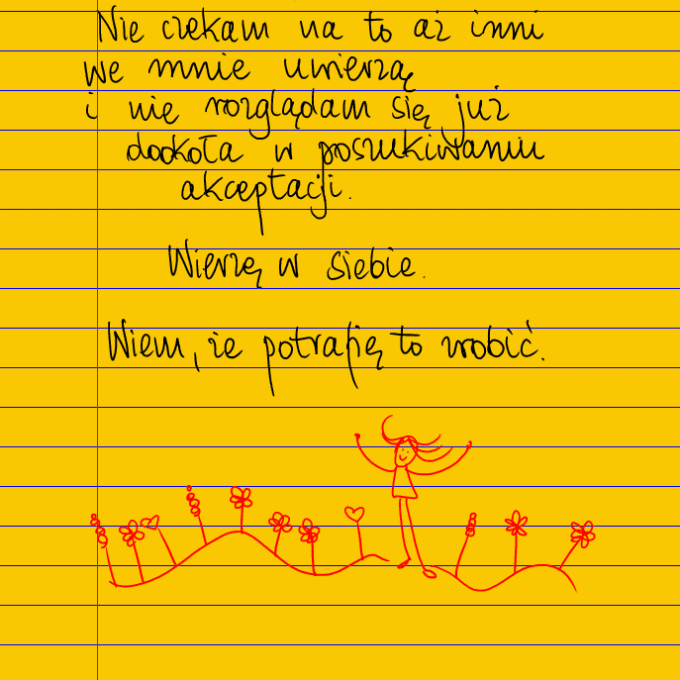 Nie czekam na to aż inni
we mnie uwierzą
i nie rozglądam się już
dookoła w poszukiwaniu
akceptacji.
Wierzę w siebie.
Wiem, że potrafię to zrobić.